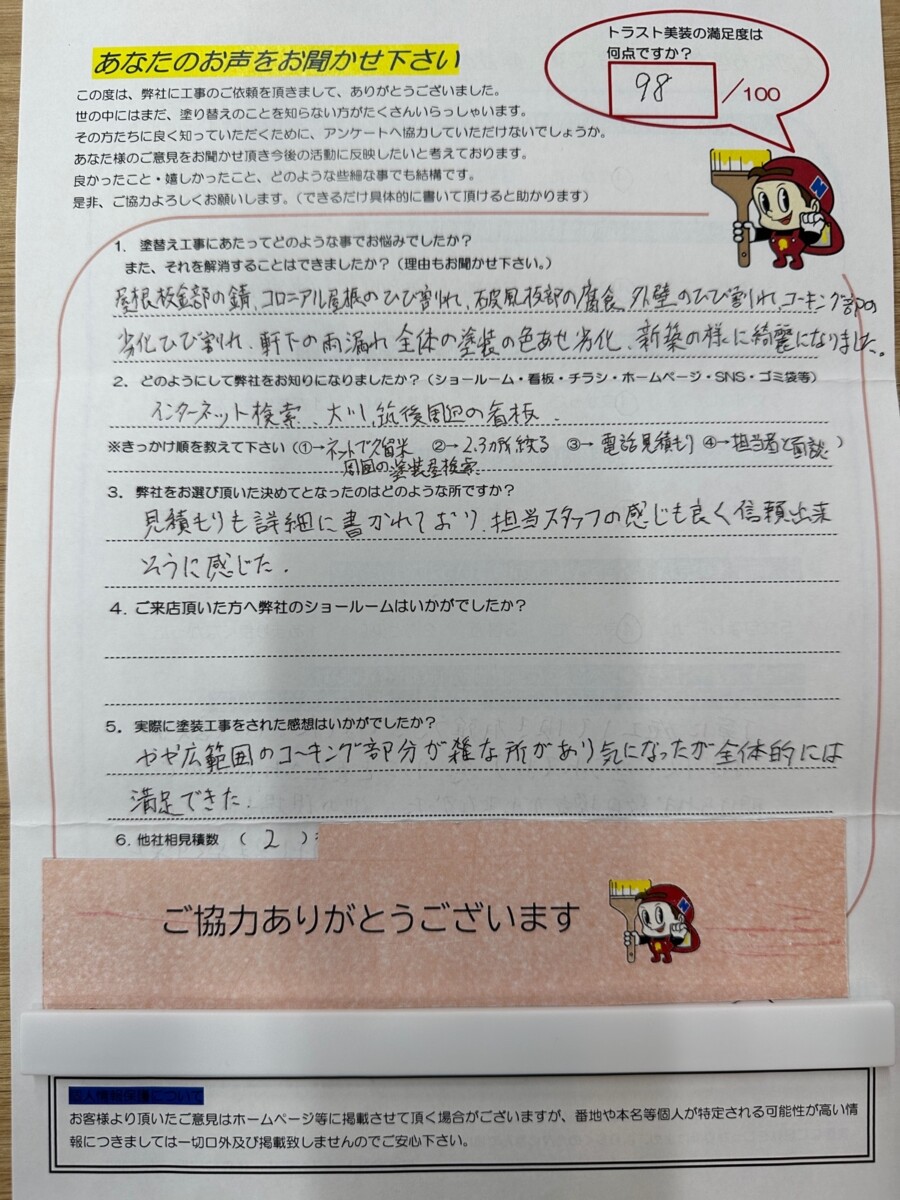 あなたのお声をお聞かせ下さい
トラスト美装の満足度は
何点ですか？
98 ／100
この度は、弊社に工事のご依頼を頂きまして、ありがとうございました。
世の中にはまだ、塗り替えのことを知らない方がたくさんいらっしゃいます。
その方たちに良く知っていただくために、アンケートへ協力していただけないでしょうか。
あなた様のご意見をお聞かせ頂き今後の活動に反映したいと考えております。
良かったこと・嬉しかったこと、どのような些細な事でも結構です。
是非、ご協力よろしくお願いします。（できるだけ具体的に書いて頂けると助かります）
1. 塗替え工事にあたってどのような事でお悩みでしたか？
また、それを解消することはできましたか？（理由もお聞かせ下さい。）
屋根板金部の錆、コロニアル屋根のひび割れ、破風板部の腐食、外壁のひび割れ、コーキング部の
劣化ひび割れ、軒下の雨漏れ、全体の塗装の色あせ劣化、新築の様に綺麗になりました。
2. どのようにして弊社をお知りになりましたか？（ショールーム・看板・チラシ・ホームページ・SNS・ゴミ袋等）
インターネット検索、大川、筑後周辺の看板
※きっかけ順を教えて下さい（①→ネットで久留米 ②→2.3か所絞る ③→電話見積もり ④→担当者と面談）
周囲の塗装屋検索
3. 弊社をお選び頂いた決めてとなったのはどのような所ですか？
見積もりも詳細に書かれており、担当スタッフの感じも良く信頼出来
そうに感じた。
4. ご来店頂いた方へ弊社のショールームはいかがでしたか？
5. 実際に塗装工事をされた感想はいかがでしたか？
やや広範囲のコーキング部分が雑な所があり気になったが全体的には
満足できた。
6. 他社相見積数 （ 2 ）
ご協力ありがとうございます
個人情報保護について
お客様より頂いたご意見はホームページ等に掲載させて頂く場合がございますが、番地や本名等個人が特定される可能性が高い情
報につきましては一切口外及び掲載致しませんのでご安心下さい。